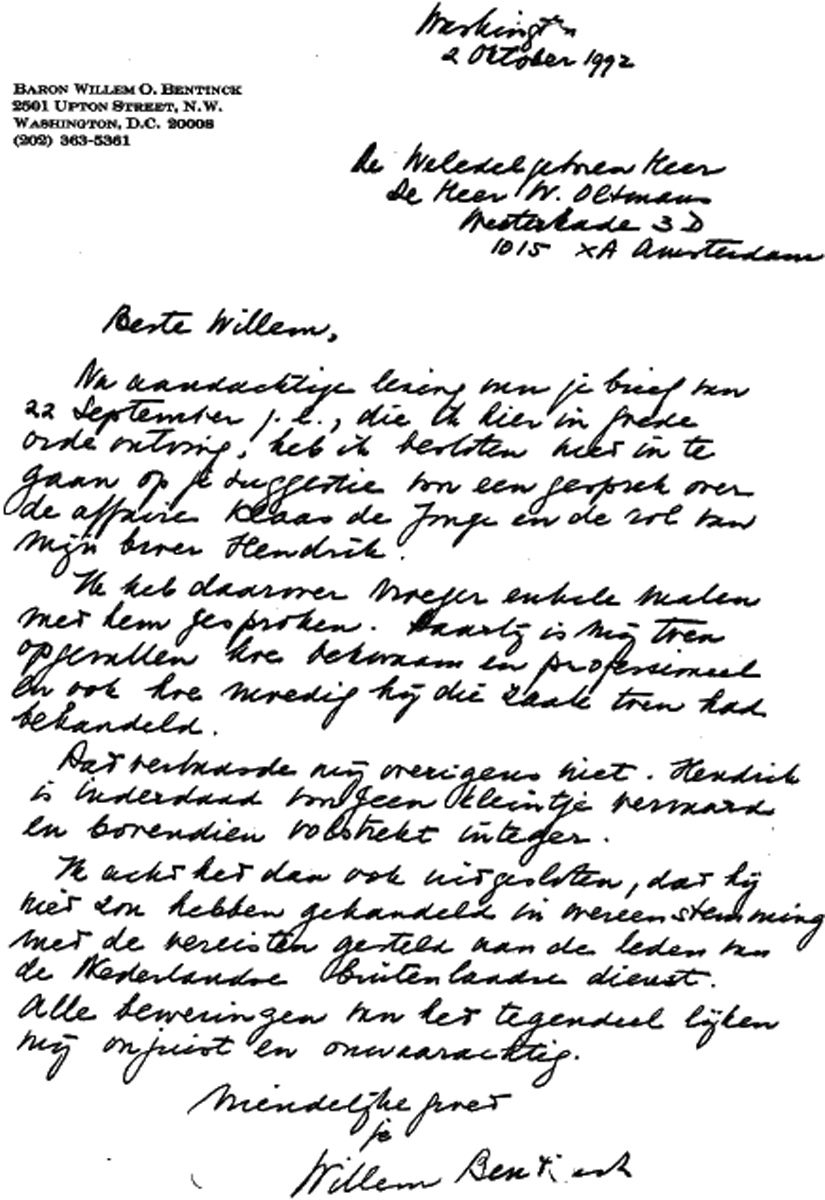 Washington
2 Oktober 1992
BARON WILLEM O. BENTINCK
2501 UPTON STREET, N.W.
WASHINGTON, D.C. 20008
(202) 363-5361
De Weledelgeboren Heer
De Heer W. Oltmans
Westerkade 3 D
1015 XA Amsterdam
Beste Willem,
Na aandachtige lezing van je brief van
22 September j.l., die ik hier in goede
orde ontving, heb ik besloten niet in te
gaan op je suggestie van een gesprek over
de affaire Klaas de Jonge en de rol van
mijn broer Hendrik.
Ik heb daarover vroeger enkele malen
met hem gesproken. Daarbij is mij toen
opgevallen hoe bekwaam en professioneel
en ook hoe moedig hij die zaak toen had
behandeld.
Dat verbaasde mij overigens niet. Hendrik
is inderdaad voor geen kleintje vervaard
en bovendien volstrekt integer.
Ik acht het dan ook uitgesloten, dat hij
niet zou hebben gehandeld in overeenstemming
met de vereisten gesteld aan de leden van
de Nederlandse buitenlandse dienst.
Alle beweringen van het tegendeel lijken
mij onjuist en onwaarachtig.
Vriendelijke groet
je
Willem Bentinck